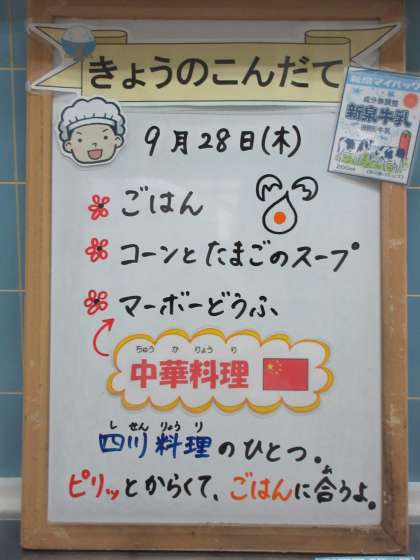 きょうのこんだて
新泉マイパック
成分無調整
新泉牛乳
9月28日(木)
ごはん
コーンとたまごのスープ
マーボーどうふ
ちゅう か りょう り
中華料理
し せん りょう り
四川料理のひとつ。
ピリッとからくて、ごはんに合うよ。
あ